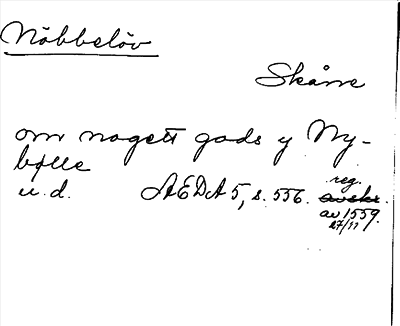 Nöbbelöv
Skåne
om nogett gods y Ny-
bølle
u.d. ÆDA 5, s. 556. reg.
avskr.
av 1559.
27/11